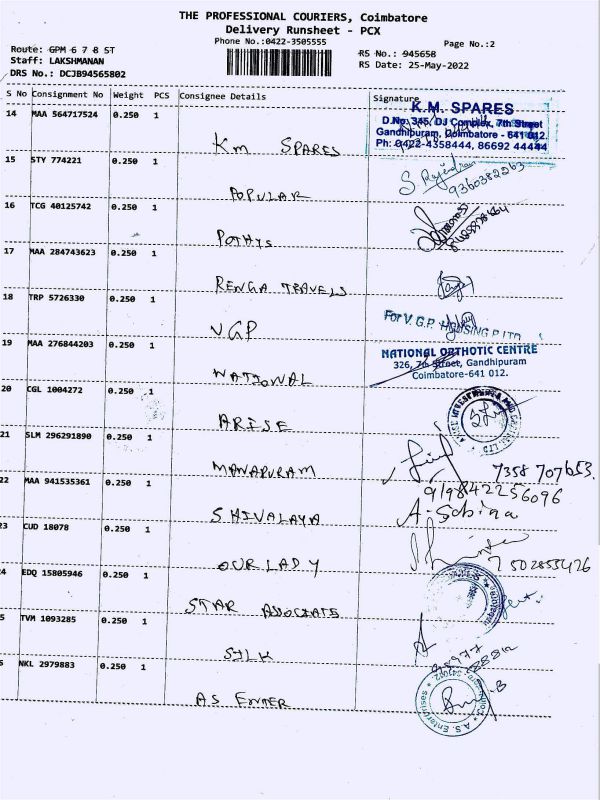 THE PROFESSIONAL COURIERS, Coimbatore
Delivery Runsheet - PCX
Phone No.:0422-3505555
Page No.:2
Route: GPM 6 7 8 ST
Staff: LAKSHMANAN
DRS No.: DCJB94565802
RS No.: 945658
RS Date: 25-May-2022
S No Consignment No Weight PCS Consignee Details Signature
14 MAA 564717524 0.250 1 Km SPARES
K.M. SPARES
D.No. 345, DJ Complex, 7th Street
Gandhipuram, Coimbatore - 641 012.
Ph: 0422-4358444, 86692 44444
15 STY 774221 0.250 1 POPULAR
S. Rajendran
9360382563
16 TCG 40125742 0.250 1 POTHYS
17 MAA 284743623 0.250 1 RENGA TRAVELS
18 TRP 5726330 0.250 1 VGP
For V.G.P. HOUSING P LTD
19 MAA 276844203 0.250 1 NATIONAL
NATIONAL ORTHOTIC CENTRE
326, 7th Street, Gandhipuram
Coimbatore-641 012.
20 CGL 1004272 0.250 1 ARISE
21 SLM 296291890 0.250 1 MANAPURAM
7358 707653
22 MAA 941535361 0.250 1 SHIVALAYA
919842256096
A-Sobina
23 CUD 18078 0.250 1 OUR LADY
7502853426
4 EDQ 15805946 0.250 1 STAR ASSOCIATE
5 TVM 1093285 0.250 1 SILK
6 NKL 2979883 0.250 1 A.S ENTER
A.S. Enterprises